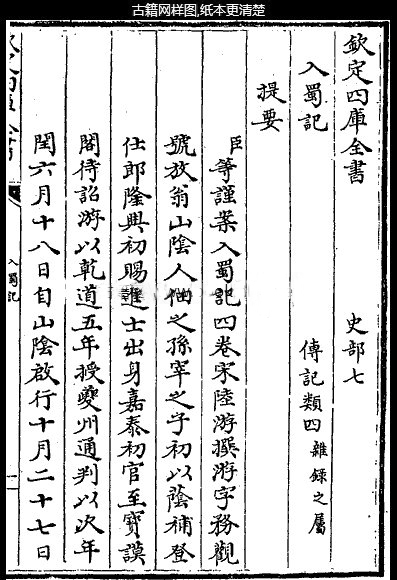 古籍网样图,纸本更清楚
欽定四庫全書 史部七
入蜀記 傳記類四 雜録之屬
提要
臣等謹案入蜀記四卷宋陸游撰游字務觀
號放翁山陰人佃之孫宰之子初以蔭補登
仕郎隆興初賜進士出身嘉泰初官至寶謨
閣待詔游以乾道五年授夔州通判以次年
閏六月十八日自山陰啟行十月二十七日
入蜀記